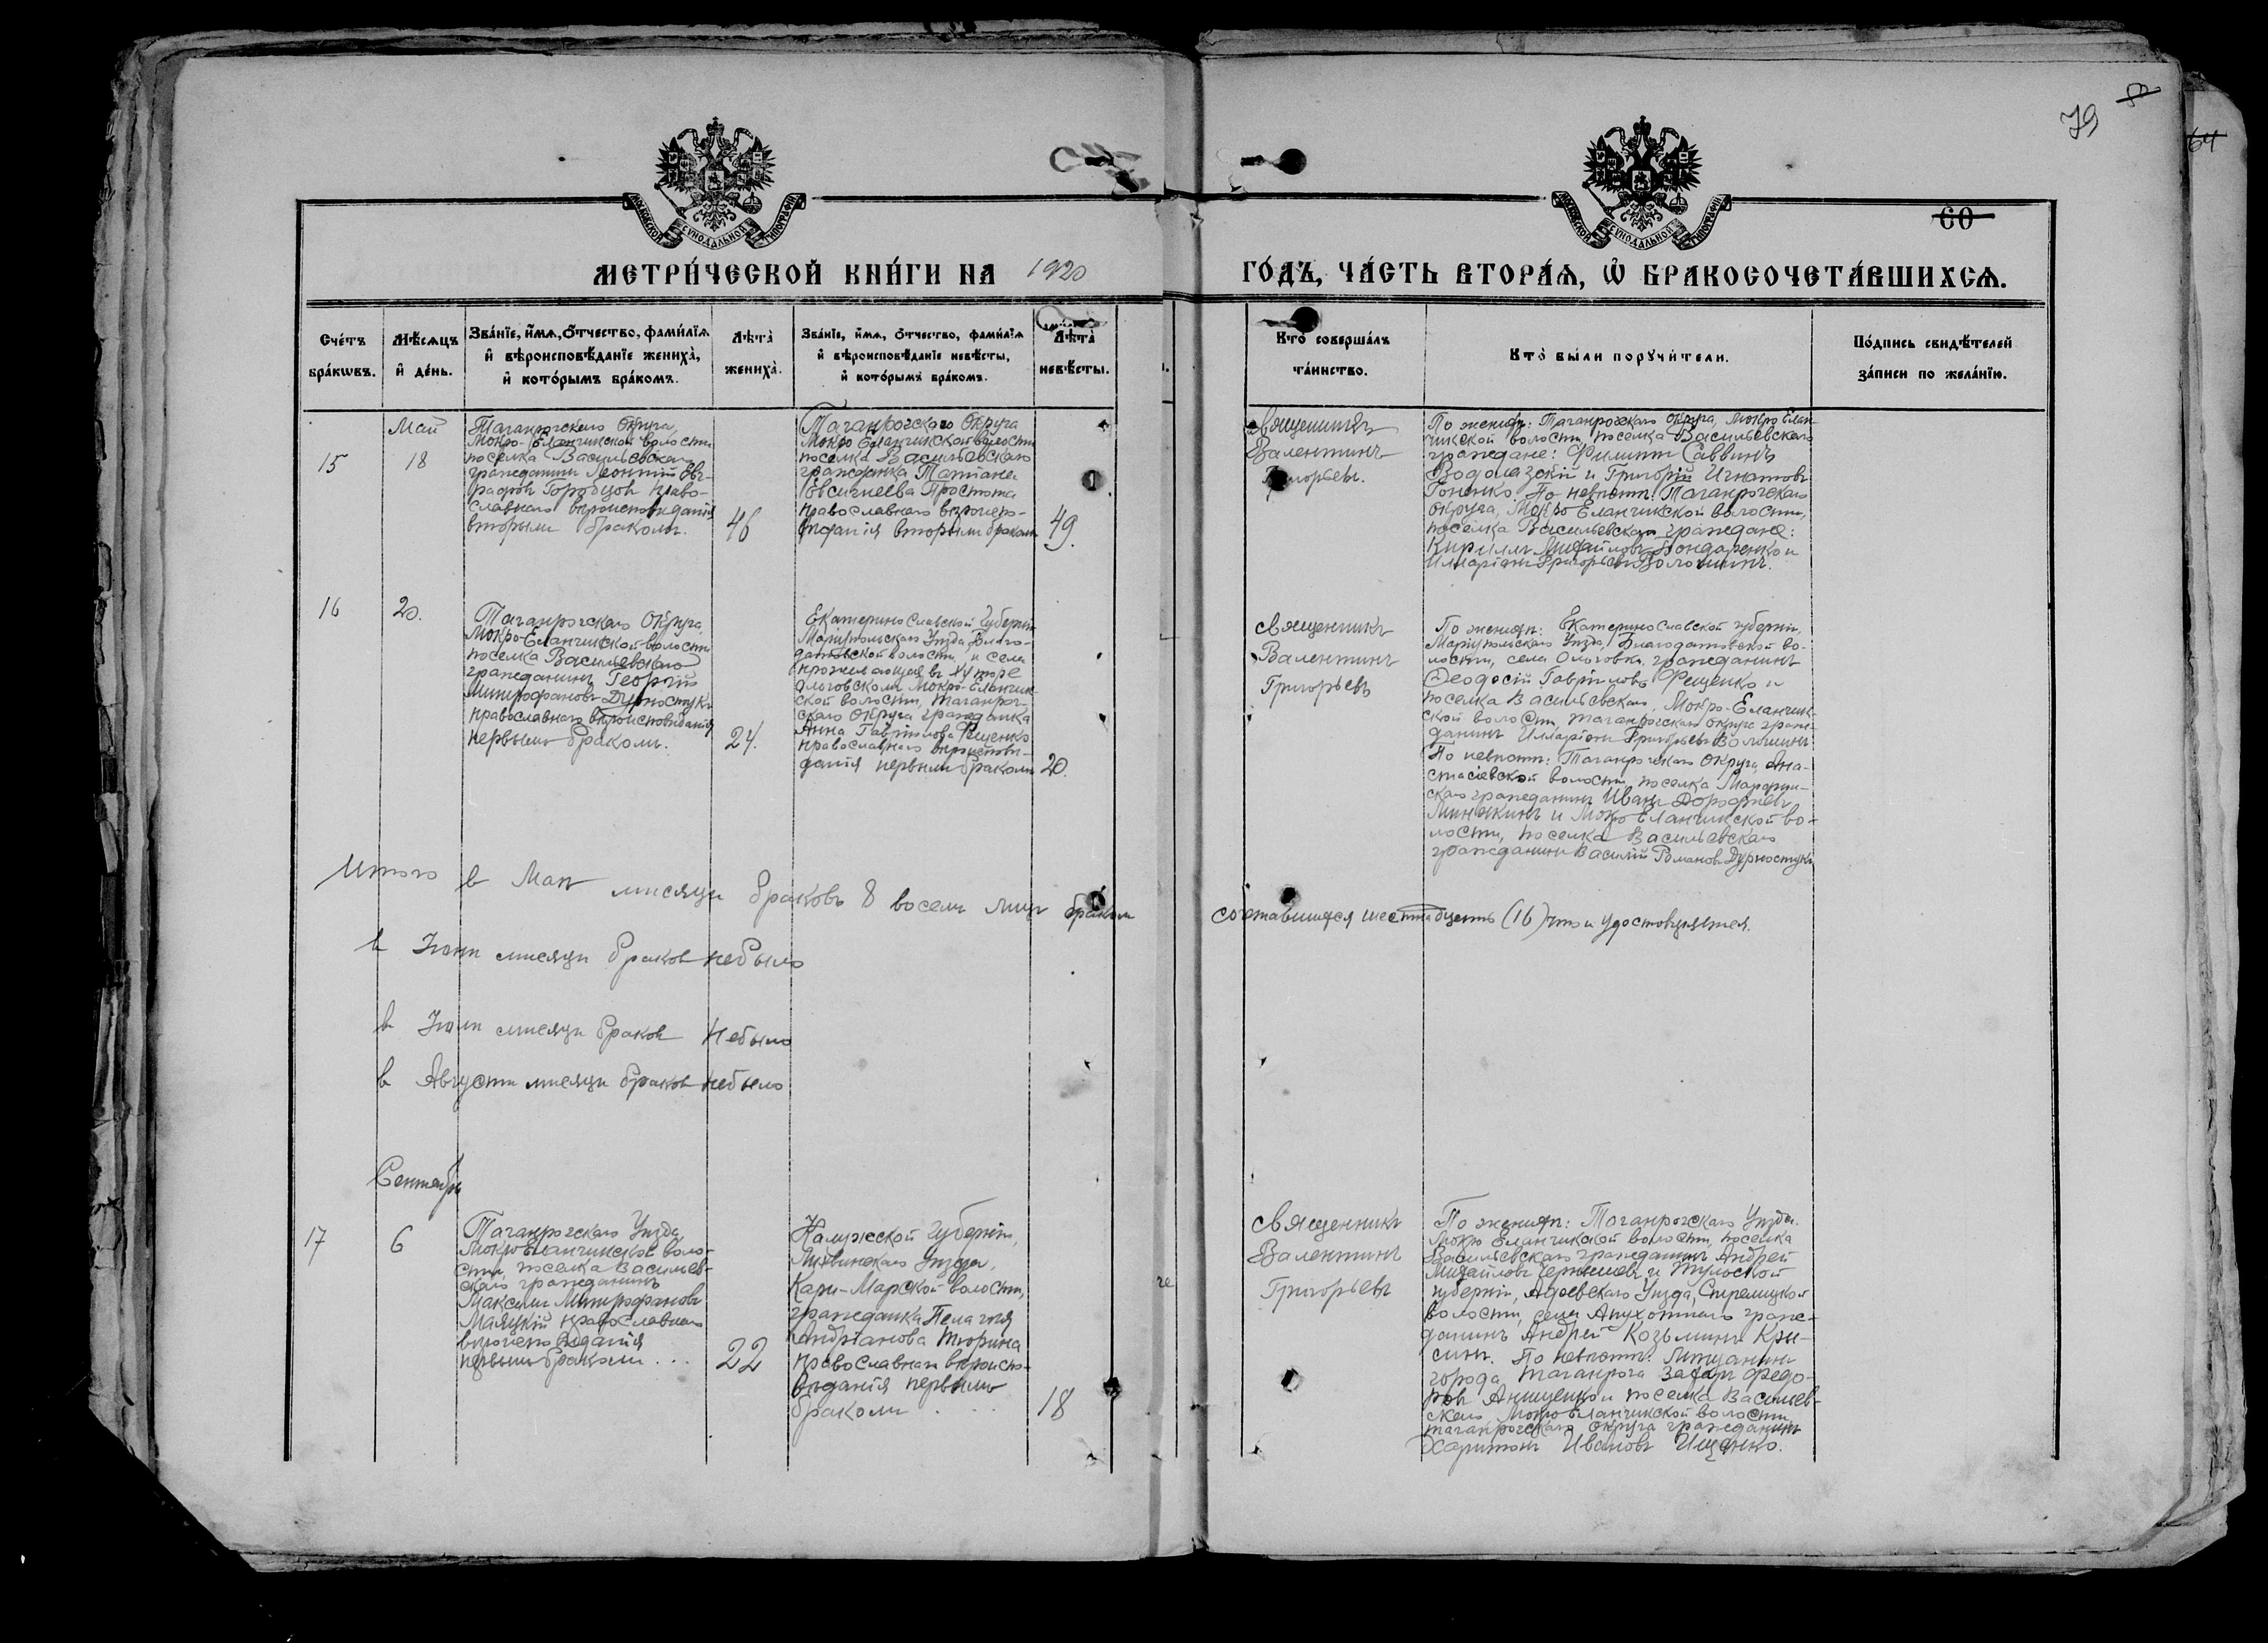 79
60
64
МОСКОВСКОЙ СѴНОДАЛЬНОЙ ТИПОГРАФІИ
МОСКОВСКОЙ СѴНОДАЛЬНОЙ ТИПОГРАФІИ
МЕТРИ́ЧЕСКОЙ КНИ́ГИ НА 1920
ГО́ДЪ, ЧА́СТЬ ВТОРА́Ѧ, Ѽ БРАКОСОЧЕТА́ВШИХСѦ.
Сче́тъ
бра́кѡвъ.
Мѣ́сѧцъ
и҆ де́нь.
Зва́нїе, и҆́мѧ, о҆́тчество, фами́лїѧ
и҆ вѣроисповѣ́данїе жениха̀,
и҆ кото́рымъ бра́комъ.
Лѣ́та̀
жениха̀.
Зва́нїе, и҆́мѧ, о҆́тчество, фами́лїѧ
и҆ вѣроисповѣ́данїе невѣ́сты,
и҆ кото́рымъ бра́комъ.
Лѣ́та̀
невѣ́сты.
Кто̀ соверша́лъ
та́инство.
Кто̀ бы́ли порꙋчи́тели.
По́дпись свидѣ́телей
за́писи по жела́нїю.
15
Май
18
Таганрогскаго Округа,
Мокро-Еланчикской волости
поселка Васильевскаго
гражданинъ Леонтій Ев-
графовъ Городцовъ право-
славнаго вѣроисповѣданія
вторымъ бракомъ.
46
Таганрогскаго Округа
Мокро Еланчикской волости
поселка Васильевскаго
гражданка Татіана
Евсигнеева Простота
православнаго вѣроиспо-
вѣданія вторымъ бракомъ
49.
Священникъ
Валентинъ
Григорьевъ.
По женихѣ: Таганрогскаго Округа, Мокро Елан-
чикской волости, поселка Васильевскаго
граждане: Филиппъ Саввинъ
Водолазскій и Григорій Игнатовъ
Гоненко. По невѣстѣ: Таганрогскаго
округа, Мокро Еланчикской волости,
поселка Васильевскаго граждане:
Кириллъ Михайловъ Бондаренко и
Илларіонъ Григорьевъ Волошинъ.
16
20.
Таганрогскаго Округа
Мокро-Еланчикской волости
поселка Васильевскаго
гражданинъ Георгій
Митрофановъ Дурностукъ
православнаго вѣроисповѣданія
первымъ бракомъ.
24.
Екатеринославской губерніи
Маріупольскаго Уѣзда, Благо-
датовской волости, и села
проживающая въ хуторе
Ологовскомъ Мокро-Еланчик-
ской волости, Таганрог-
скаго Округа гражданка
Анна Гавріилова Фещенко
православнаго вѣроисповѣ-
данія первымъ бракомъ
20.
Священникъ
Валентинъ
Григорьевъ
По женихѣ: Екатеринославской губерніи,
Маріупольскаго Уѣзда, Благодатовской во-
лости, села Ологовки, гражданинъ
Феодосій Гавріиловъ Фещенко и
поселка Васильевскаго, Мокро-Еланчик-
ской волости, Таганрогскаго округа граж-
данинъ Илларіонъ Григорьевъ Волошинъ
По невѣстѣ: Таганрогскаго Округа, Ана-
стасіевской волости, поселка Марфин-
скаго гражданинъ Иванъ Дорофѣевъ
и Мокро Еланчикской во-
лости, поселка Васильевскаго
гражданинъ Василій Романовъ Дурностукъ
Итого в Маѣ мѣсяцѣ браковъ 8 восемь лицъ бракомъ
сочетавшихся шестнадцать (16) что и удостовѣряется.
в Іюнѣ мѣсяцѣ браков небыло
в Іюлѣ мѣсяцѣ браков Небыло
в Августѣ мѣсяцѣ браков небыло
Сентябрь
17
6
Таганрогскаго Уѣзда,
Мокро Еланчикской воло-
сти, поселка Васильев-
скаго гражданинъ
Максимъ Митрофановъ
Маяцкій православнаго
вѣроисповѣданія
первымъ бракомъ . . .
22
Калужской губерніи,
Лихвинскаго уѣзда,
волости,
гражданка Пелагія
Андріанова Тюрина
православнаго вѣроиспо-
вѣданія первымъ
бракомъ . . .
18
Священникъ
Валентинъ
Григорьевъ
По женихѣ: Таганрогскаго Уѣзда.
Мокро Еланчикской волости, поселка
Васильевскаго гражданинъ Андрей
Михайловъ Чернышевъ и Тульской
губерніи, Уѣзда, Стрелицкой
волости, села Апухотина граж-
данинъ Андрей Козьминъ Кри-
синъ. По невѣстѣ: Мѣщанинъ
города Таганрога Захаръ Федо-
ровъ Анищенко и поселка Васильев-
скаго, Мокро Еланчикской волости,
таганрогскаго округа гражданинъ
Харитонъ Ивановъ Ищенко.